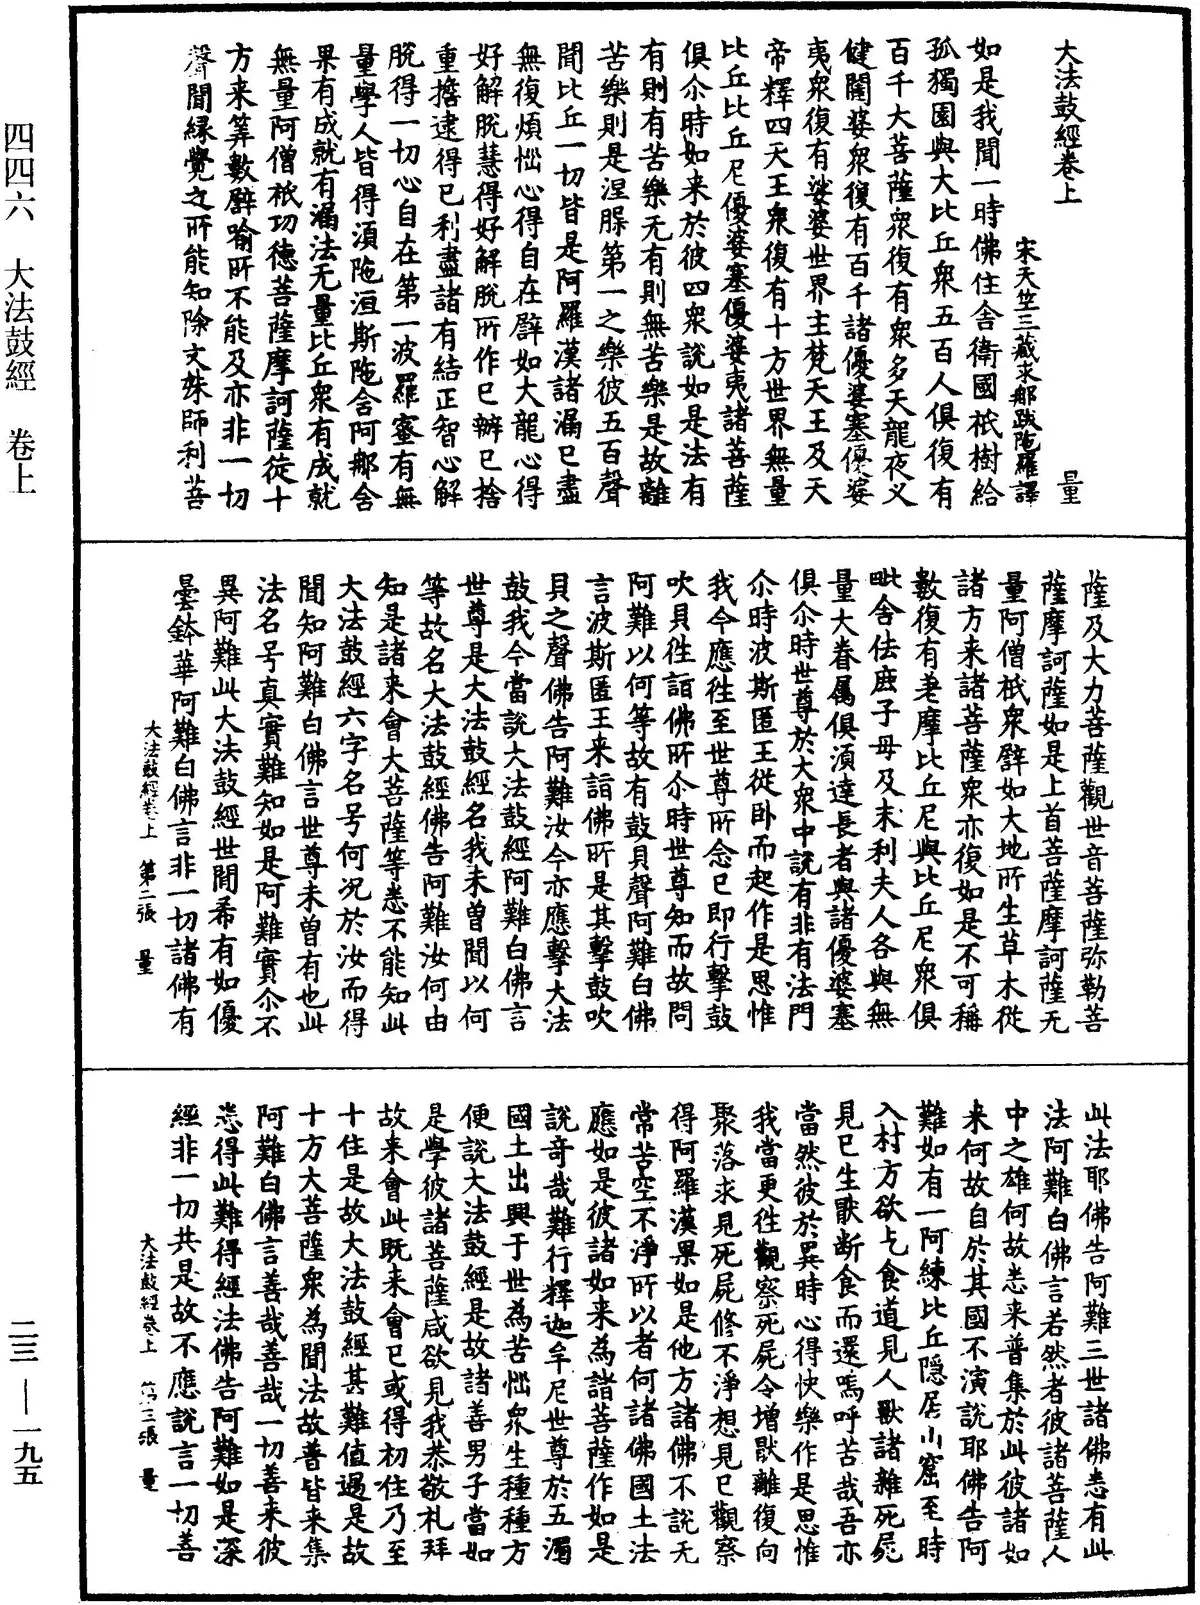 四四六　大法鼓經　卷上
大法鼓經卷上　量
宋天竺三藏求那跋陁羅譯
如是我聞一時佛住舍衛國祇樹給
孤獨園與大比丘衆五百人俱復有
百千大菩薩衆復有衆多天龍夜叉
健闥婆衆復有百千諸優婆塞優婆
夷衆復有娑婆世界主梵天王及天
帝釋四天王衆復有十方世界無量
比丘比丘尼優婆塞優婆夷諸菩薩
俱尒時如来於彼四衆說如是法有
有則有苦樂无有則無苦樂是故離
苦樂則是涅槃第一之樂彼五百聲
聞比丘一切皆是阿羅漢諸漏已盡
無復煩惱心得自在譬如大龍心得
好解脫慧得好解脫所作已辦已捨
重擔逮得已利盡諸有結正智心解
脫得一切心自在第一波羅蜜有無
量學人皆得須陁洹斯陁含阿那含
果有成就有漏法无量比丘衆有成就
無量阿僧祇功德菩薩摩訶薩從十
方来筭數譬喻所不能及亦非一切
聲聞緣覺之所能知除文殊師利菩
薩及大力菩薩觀世音菩薩弥勒菩
薩摩訶薩如是上首菩薩摩訶薩无
量阿僧祇衆譬如大地所生草木從
諸方来諸菩薩衆亦復如是不可稱
數復有差摩比丘尼與比丘尼衆俱
毗舍佉鹿子母及末利夫人各與無
量大眷屬俱須達長者與諸優婆塞
俱尒時世尊於大衆中說有非有法門
尒時波斯匿王從卧而起作是思惟
我今應往至世尊所念已即行擊鼓
吹貝往詣佛所尒時世尊知而故問
阿難以何等故有鼓貝聲阿難白佛
言波斯匿王来詣佛所是其擊鼓吹
貝之聲佛告阿難汝今亦應擊大法
鼓我今當說大法鼓經阿難白佛言
世尊是大法鼓經名我未曾聞以何
等故名大法鼓經佛告阿難汝何由
知是諸来會大菩薩等悉不能知此
大法鼓經六字名号何況於汝而得
聞知阿難白佛言世尊未曾有也此
法名号真實難知如是阿難實尒不
異阿難此大法鼓經世間希有如優
曇鉢華阿難白佛言非一切諸佛有
大法鼓經卷上　第二張　量
此法耶佛告阿難三世諸佛悉有此
法阿難白佛言若然者彼諸菩薩人
中之雄何故悉来普集於此彼諸如
来何故自於其國不演說耶佛告阿
難如有一阿練比丘隱居山窟至時
入村方欲乞食道見人獸諸雜死屍
見已生猒斷食而還嗚呼苦哉吾亦
當然彼於異時心得快樂作是思惟
我當更往觀察死屍令增猒離復向
聚落求見死屍修不淨想見已觀察
得阿羅漢果如是他方諸佛不說无
常苦空不淨所以者何諸佛國土法
應如是彼諸如来為諸菩薩作如是
說奇哉難行釋迦牟尼世尊於五濁
國土出興于世為苦惱衆生種種方
便說大法鼓經是故諸善男子當如
是學彼諸菩薩咸欲見我恭敬礼拜
故来會此既来會已或得初住乃至
十住是故大法鼓經甚難值遇是故
十方大菩薩衆為聞法故普皆来集
阿難白佛言善哉善哉一切善来彼
悉得此難得經法佛告阿難如是深
經非一切共是故不應說言一切善
大法鼓經卷上　第三張　量
二三—一九五